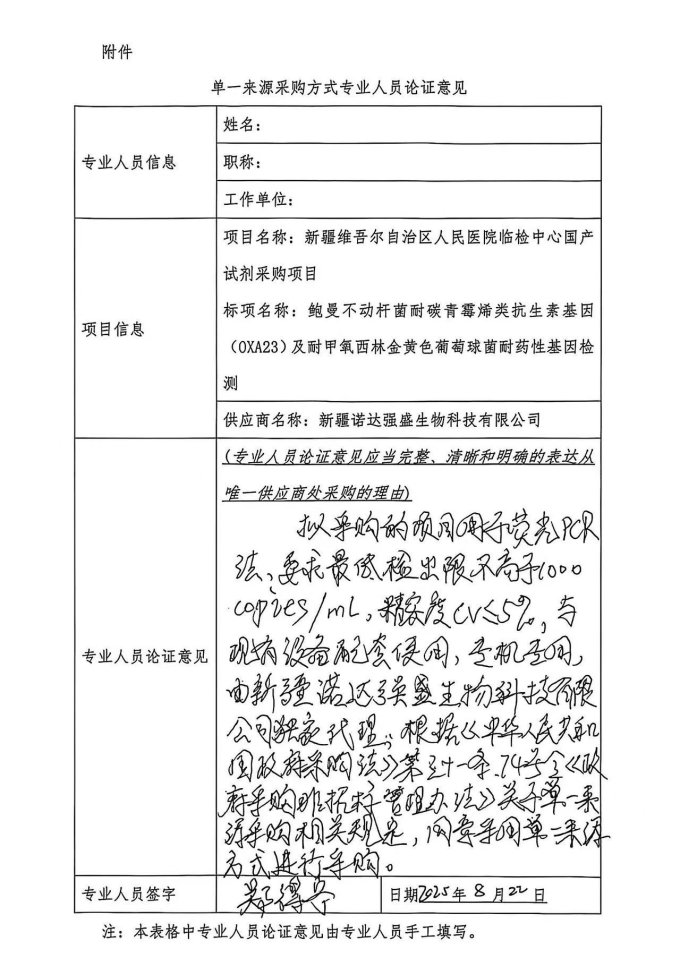 附件
单一来源采购方式专业人员论证意见
专业人员信息
姓名：
职称：
工作单位：
项目信息
项目名称：新疆维吾尔自治区人民医院临检中心国产
试剂采购项目
标项名称：鲍曼不动杆菌耐碳青霉烯类抗生素基因
（OXA23）及耐甲氧西林金黄色葡萄球菌耐药性基因检
测
供应商名称：新疆诺达强盛生物科技有限公司
专业人员论证意见
（专业人员论证意见应当完整、清晰和明确的表达从
唯一供应商处采购的理由）
拟采购的项目用于荧光PCR
法、要求最低检出限不高于1000
copies/mL，精密度CV≤5%，与
现有设备配套使用，专机专用，
由新疆诺达强盛生物科技有限
公司独家代理，根据《中华人民共和
国政府采购法》第三十一条、74号令《政
府采购非招标管理办法》关于单一来
源采购相关规定，同意采用单一来源
方式进行采购。
专业人员签字
日期2025年8月22日
注：本表格中专业人员论证意见由专业人员手工填写。